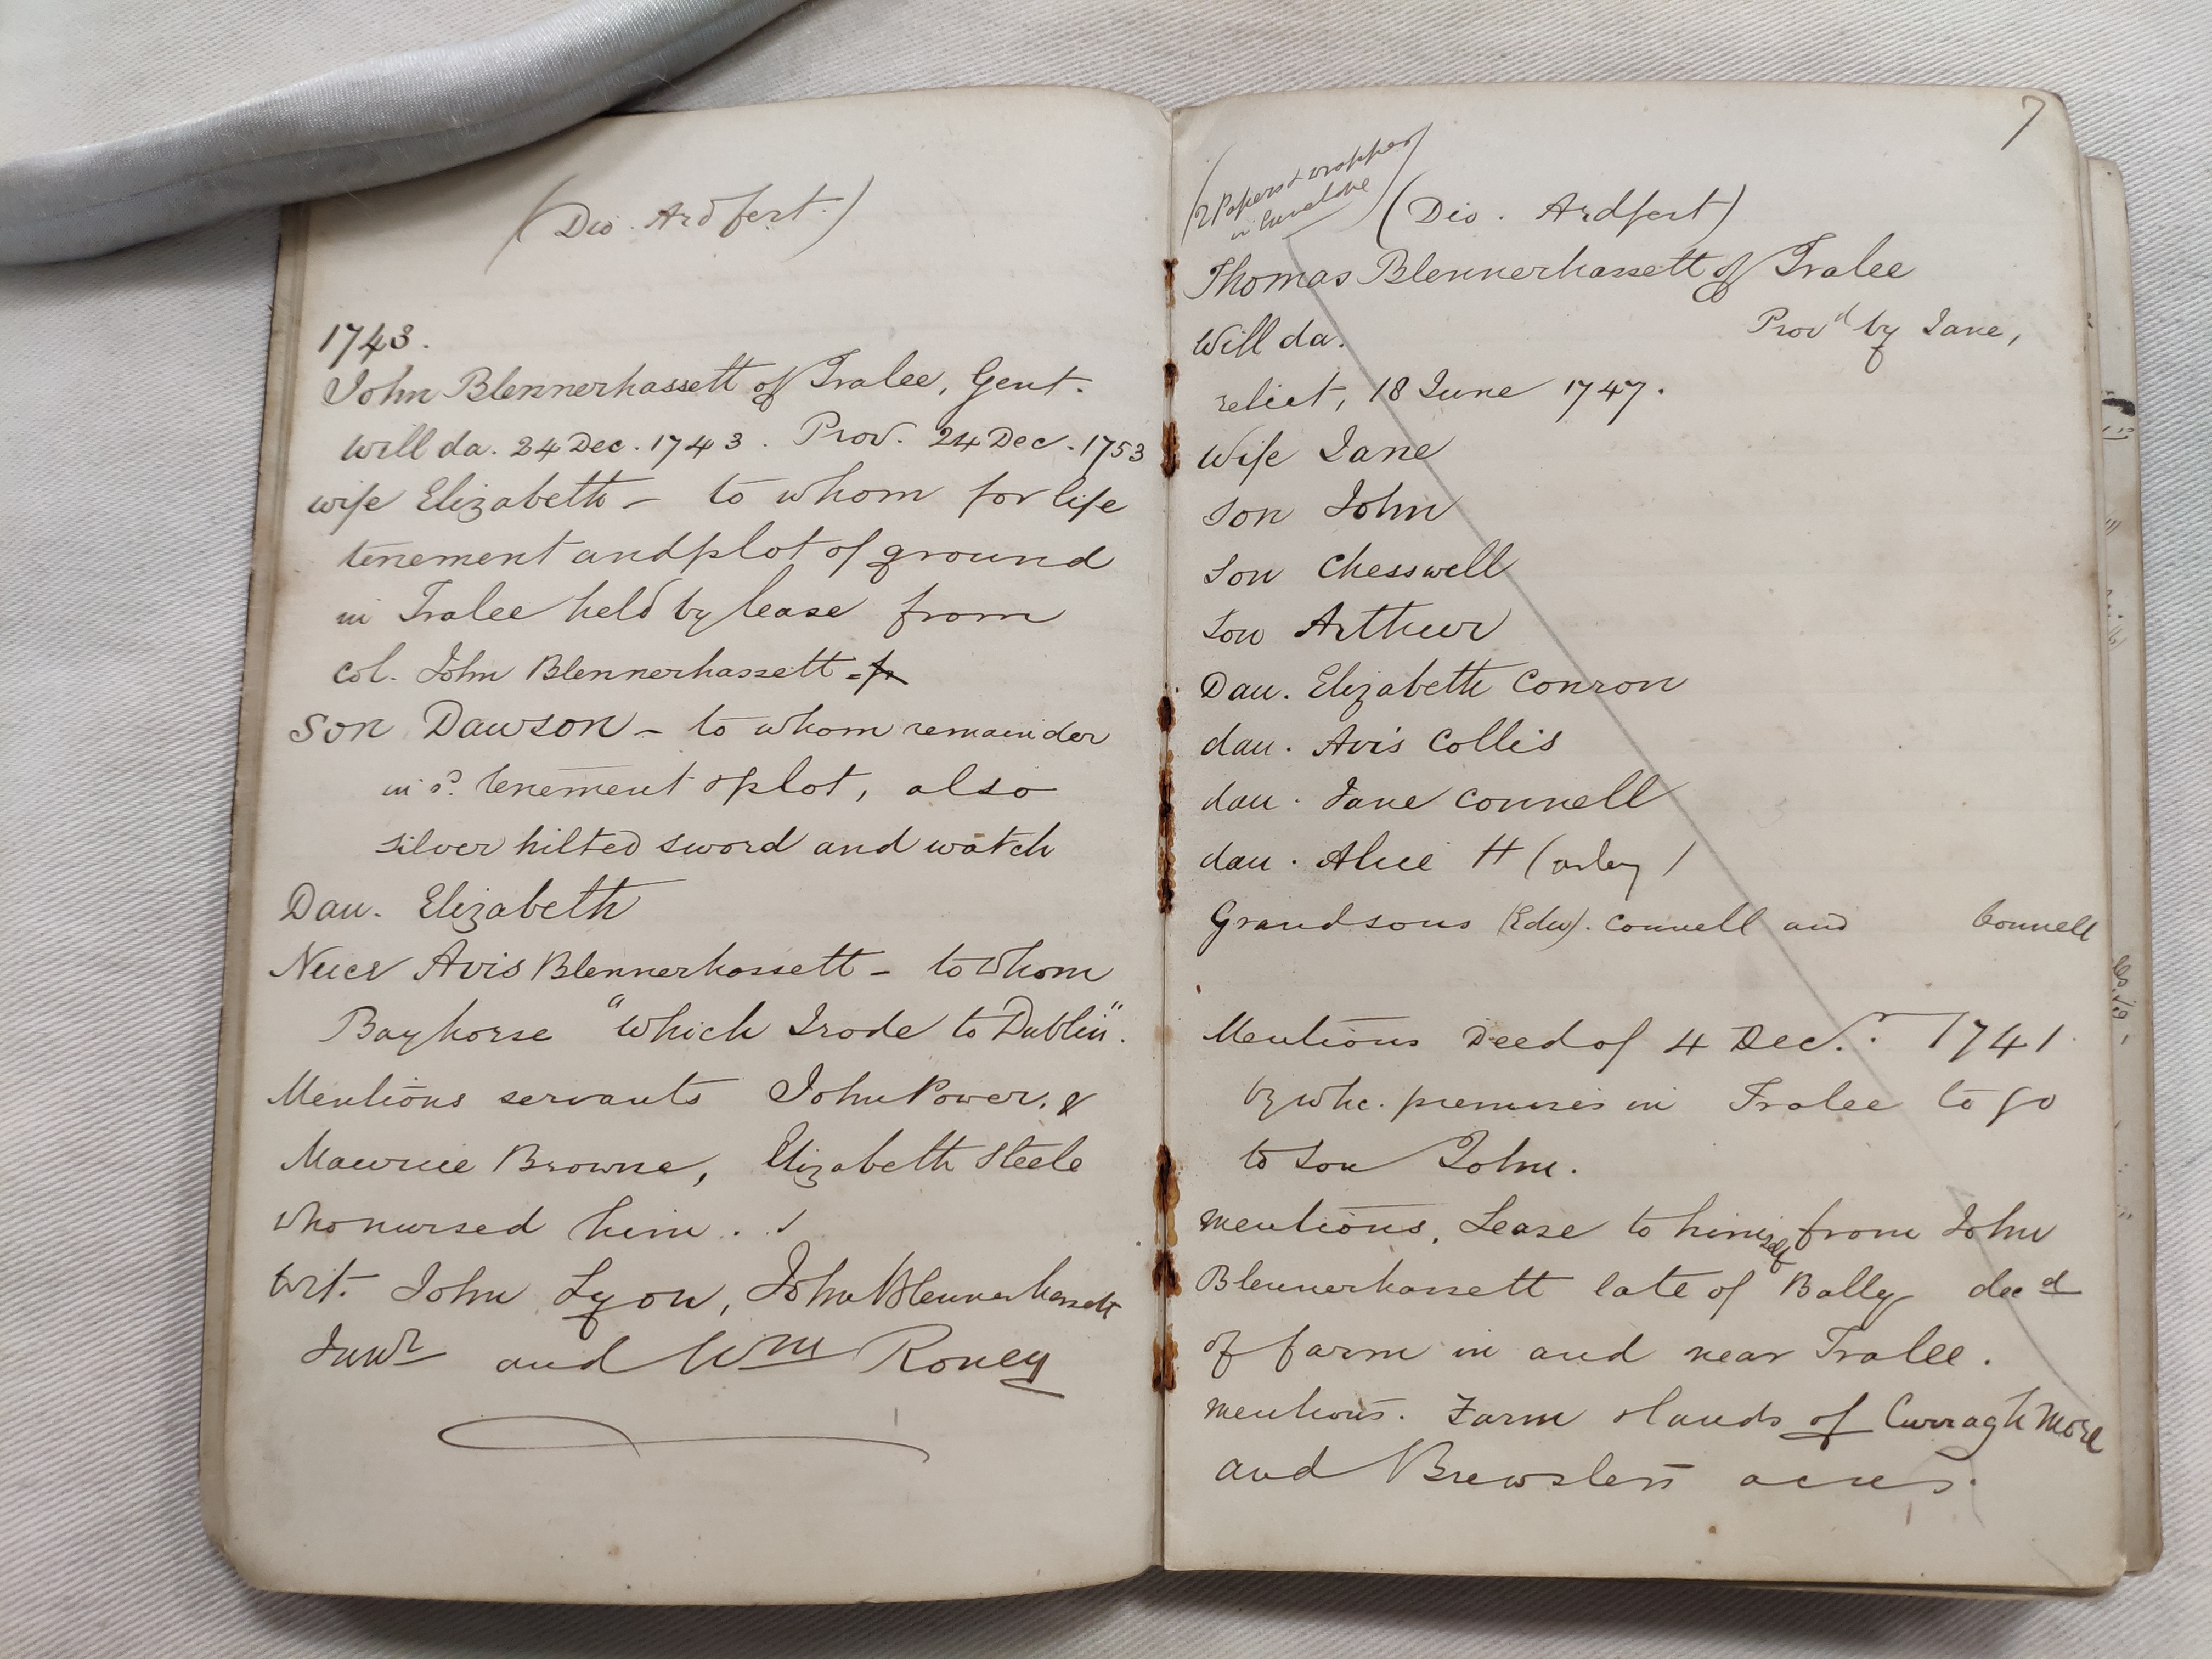 (Dio. Ardfert.)
1743.
John Blennerhassett of Tralee, Gent.
Will da. 24 Dec. 1743. Prov. 24 Dec. 1753
wife Elizabeth - to whom for life
tenement and plot of ground
in Tralee held by lease from
Col. John Blennerhassett
Son Dawson - to whom remainder
in sd. tenement & plot, also
silver hilted sword and watch
Dau. Elizabeth
Niece Avis Blennerhassett - to whom
Bay horse "which I rode to Dublin".
Mentions servants John Power, &
Maurice Browne, Elizabeth Steele
who nursed him.
Wit. John Lyon, John Blennerhassett
Junr and Wm Roney
7
(2 Papers & wrapper
in Envelope)
(Dio. Ardfert)
Thomas Blennerhassett of Tralee
Will da. Provd by Jane,
relict, 18 June 1747.
Wife Jane
Son John
Son Chesswell
Son Arthur
Dau. Elizabeth Conron
dau. Avis Collis
dau. Jane Connell
dau. Alice H (arley)
Grandsons (Edw). Connell and Connell
Mentions Deed of 4 Decr. 1741
by whc. premises in Tralee to go
to son John.
mentions. Lease to himself from John
Blennerhassett late of Bally decd
of farm in and near Tralee.
mentions. Farm & lands of Curragh More
and Brewsters acres.